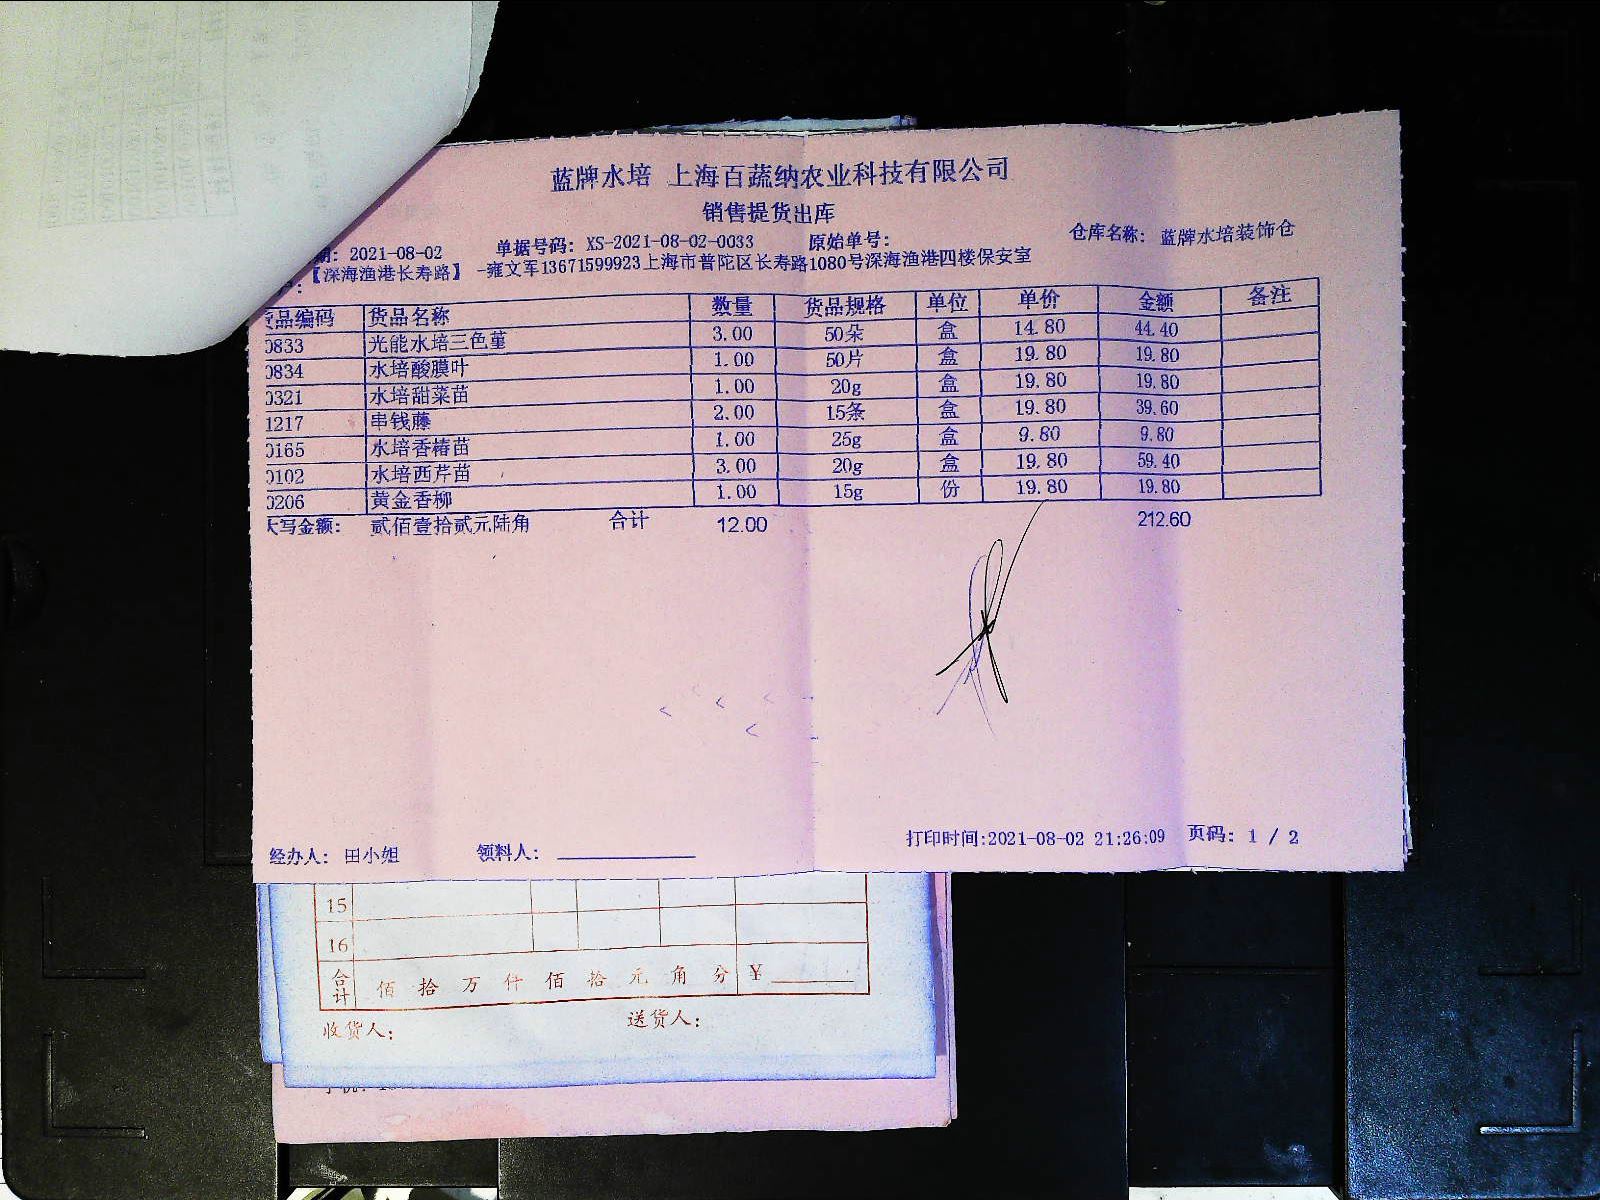 蓝牌水培 上海百蔬纳农业科技有限公司
销售提货出库
期: 2021-08-02 单据号码: XS-2021-08-02-0033 原始单号: 仓库名称: 蓝牌水培装饰仓
【深海渔港长寿路】 -雍文军13671599923上海市普陀区长寿路1080号深海渔港四楼保安室
货品编码 货品名称 数量 货品规格 单位 单价 金额 备注
0833 光能水培三色堇 3.00 50朵 盒 14.80 44.40
0834 水培酸膜叶 1.00 50片 盒 19.80 19.80
0321 水培甜菜苗 1.00 20g 盒 19.80 19.80
1217 串钱藤 2.00 15条 盒 19.80 39.60
0165 水培香椿苗 1.00 25g 盒 9.80 9.80
0102 水培西芹苗 3.00 20g 盒 19.80 59.40
0206 黄金香柳 1.00 15g 份 19.80 19.80
大写金额: 贰佰壹拾贰元陆角 合计 12.00 212.60
打印时间:2021-08-02 21:26:09 页码: 1 / 2
经办人: 田小姐 领料人:
15
16
合计 佰 拾 万 仟 佰 拾 元 角 分 ¥
收货人: 送货人: